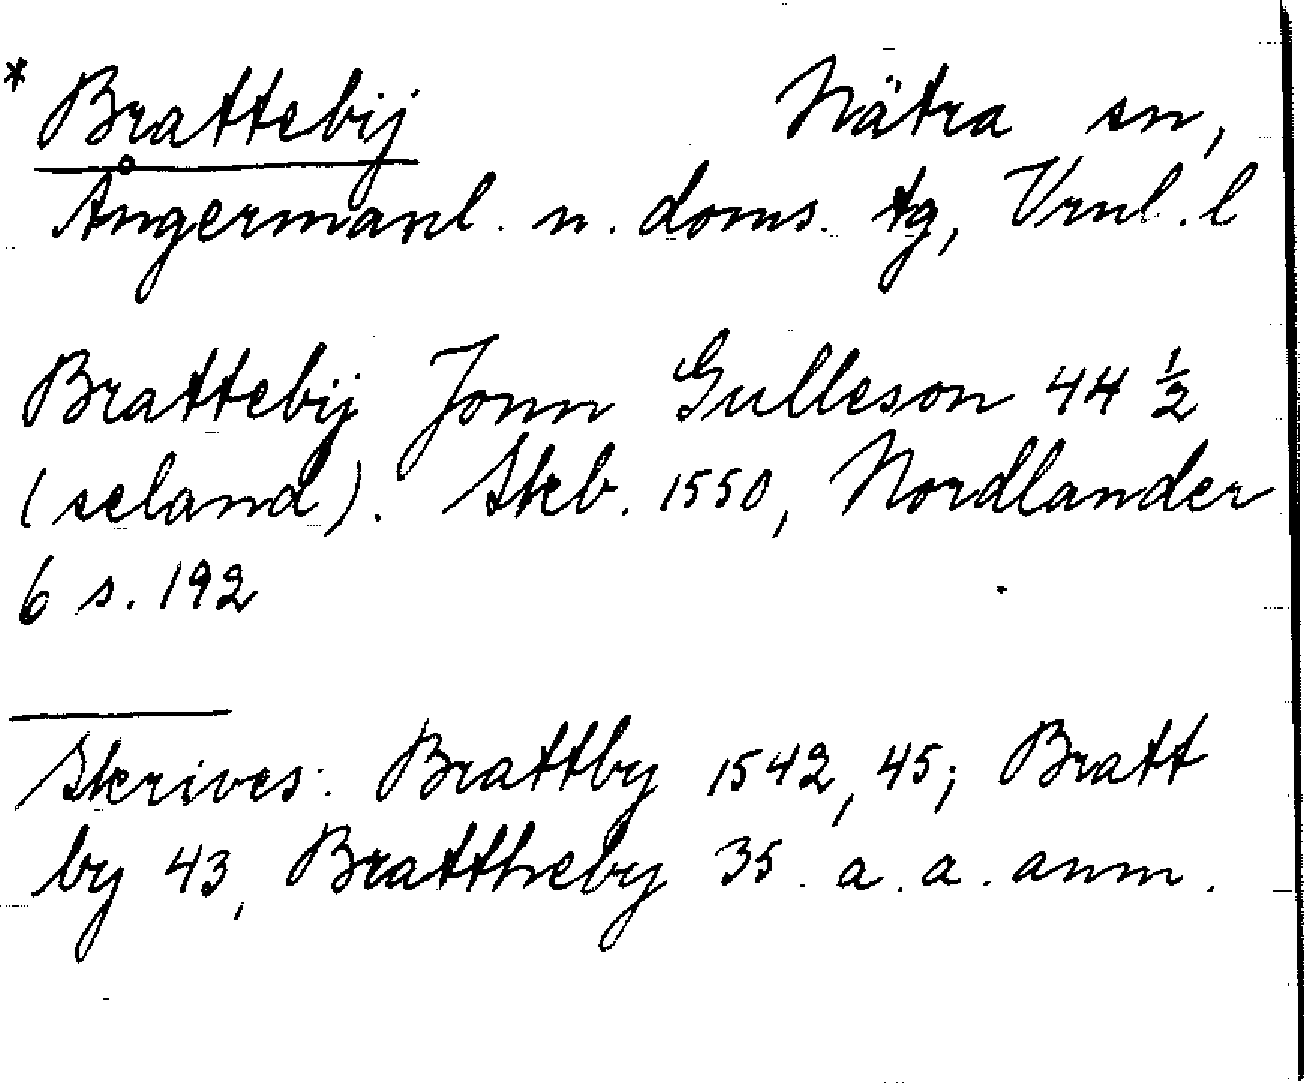 * Brattebij Nätra sn,
Ångermanl. n. doms. tg, Vrnl. l
Brattebij Jonn Gulleson 44 ½
(seland). Skb. 1550, Nordlander
6 s. 192
Skrives: Brattby 1542, 45; Bratt
by 43, Brattheby 35. a. a. anm.